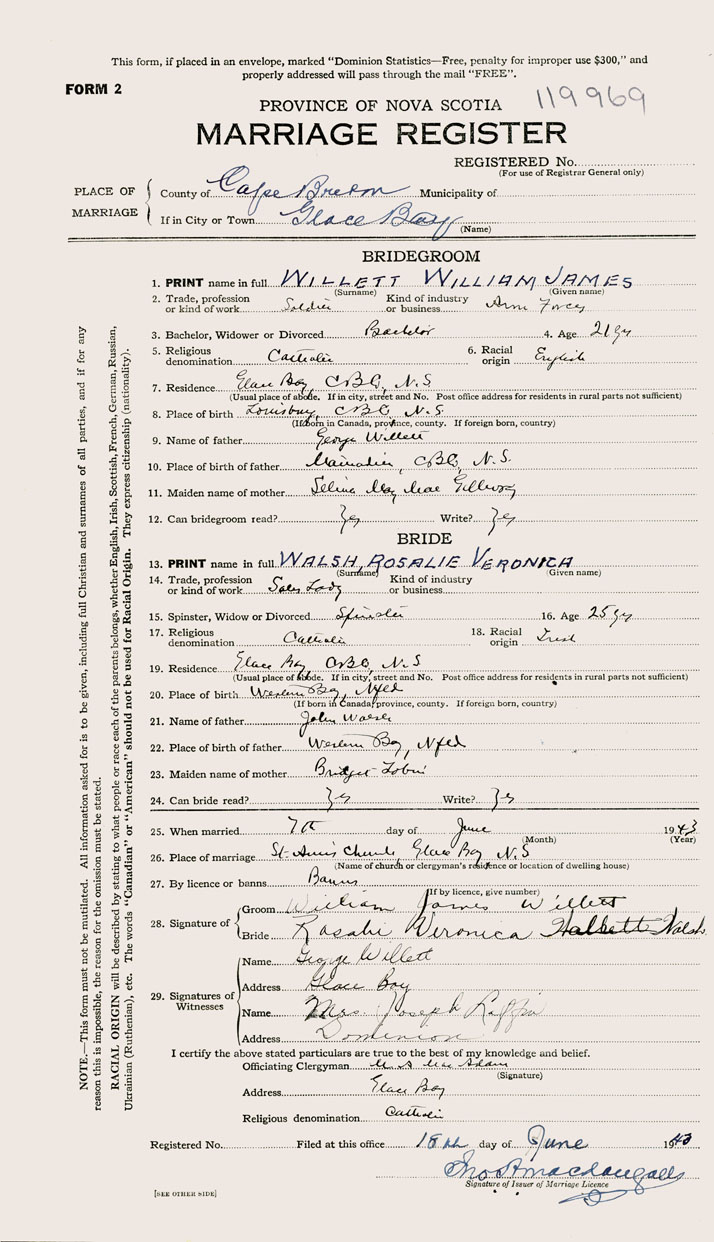 This form, if placed in an envelope, marked "Dominion Statistics—Free, penalty for improper use $300," and
properly addressed will pass through the mail "FREE".
FORM 2
PROVINCE OF NOVA SCOTIA 119969
MARRIAGE REGISTER
REGISTERED No.
(For use of Registrar General only)
PLACE OF MARRIAGE
County of Cape Breton Municipality of
If in City or Town Glace Bay
(Name)
BRIDEGROOM
1. PRINT name in full WILLETT WILLIAM JAMES
(Surname) (Given name)
2. Trade, profession or kind of work Soldier Kind of industry or business Arm Forces
3. Bachelor, Widower or Divorced Bachelor 4. Age 21 yr
5. Religious denomination Catholic 6. Racial origin English
7. Residence Glace Bay, CBCo, N.S.
(Usual place of abode. If in city, street and No. Post office address for residents in rural parts not sufficient)
8. Place of birth Louisburg, CBCo, N.S.
(If born in Canada, province, county. If foreign born, country)
9. Name of father George Willett
10. Place of birth of father Mainadieu, CBCo, N.S.
11. Maiden name of mother Selina May Mae
12. Can bridegroom read? Yes Write? Yes
BRIDE
13. PRINT name in full WALSH, ROSALIE VERONICA
(Surname) (Given name)
14. Trade, profession or kind of work Sales Lady Kind of industry or business
15. Spinster, Widow or Divorced Spinster 16. Age 25 yr
17. Religious denomination Catholic 18. Racial origin Irish
19. Residence Glace Bay, CBCo, N.S
(Usual place of abode. If in city, street and No. Post office address for residents in rural parts not sufficient)
20. Place of birth Western Bay, Nfld
(If born in Canada, province, county. If foreign born, country)
21. Name of father John Walsh
22. Place of birth of father Western Bay, Nfld
23. Maiden name of mother Bridget Tobin
24. Can bride read? Yes Write? Yes
25. When married 7th day of June 1943
(Month) (Year)
26. Place of marriage St. Ann's Church, Glace Bay, N.S
(Name of church or clergyman's residence or location of dwelling house)
27. By licence or banns Banns
(If by licence, give number)
28. Signature of
Groom William James Willett
Bride Rosalie Veronica Walsh
29. Signatures of Witnesses
Name George Willett
Address Glace Bay
Name Mrs. Joseph
Address Dominion
I certify the above stated particulars are true to the best of my knowledge and belief.
Officiating Clergyman MacAdam
(Signature)
Address Glace Bay
Religious denomination Catholic
Registered No. Filed at this office 18th day of June 1943
Jno A MacDougall
Signature of Issuer of Marriage Licence
[SEE OTHER SIDE]
NOTE.—This form must not be mutilated. All information asked for is to be given, including full Christian and surnames of all parties, and if for any
reason this is impossible, the reason for the omission must be stated.
RACIAL ORIGIN will be described by stating to what people or race each of the parents belongs, whether English, Irish, Scottish, French, German, Russian,
Ukrainian (Ruthenian), etc. The words "Canadian" or "American" should not be used for Racial Origin. They express citizenship (nationality).